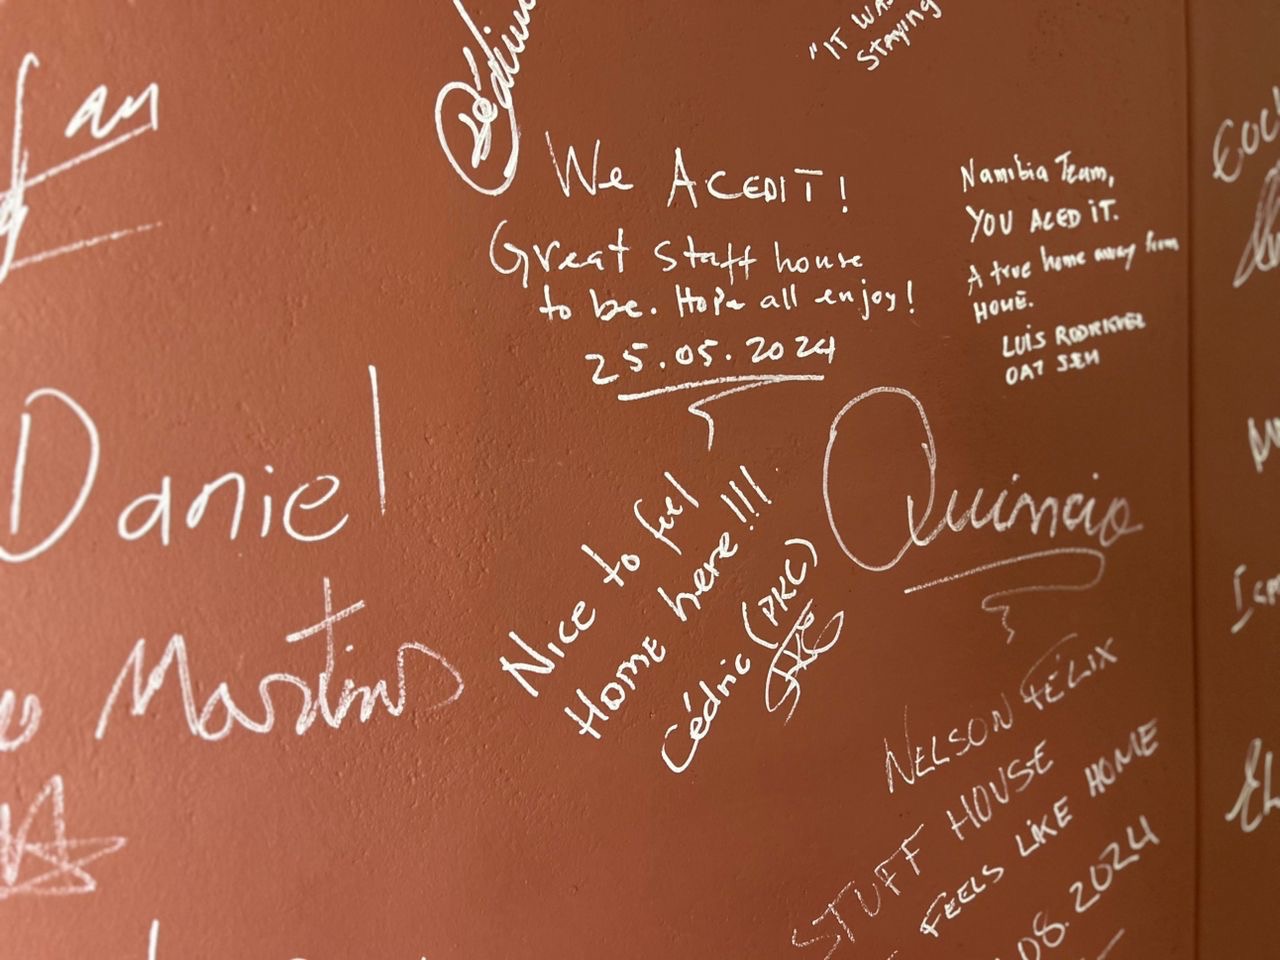 "IT WAS
STAYING
We ACEDIT!
Great staff house
to be. Hope all enjoy!
25.05.2024
Namibia Team,
YOU ACED IT.
A true home away from
HOME.
LUIS RODRIGUEZ
Daniel
Martins
Nice to feel
Home here!!!
Cédric (PKC)
Quimcio
NELSON FÉLIX
STUFF HOUSE
FEELS LIKE HOME
08.2024